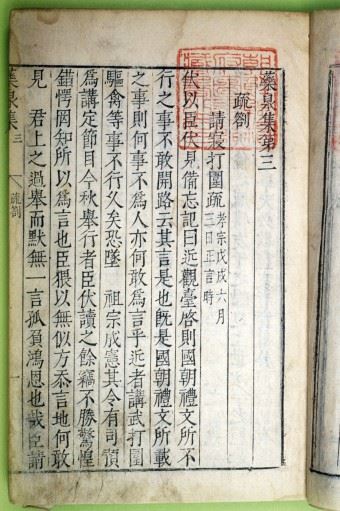 藥泉集第三
疏劄
請寢打圍疏 孝宗戊戌六月
三日正言時
伏以臣伏見備忘記曰近觀臺啓則國朝禮文所不
行之事不敢開路云其言是也旣是國朝禮文所載
之事則何事不爲人亦何敢爲言乎近者講武打圍
驅禽等事不行久矣恐墜 祖宗成憲其令有司預
爲講定節目今秋舉行者臣伏讀之餘竊不勝驚惶
錯愕罔知所以爲言也臣猥以無似方忝言地何敢
見 君上之過舉而默無一言孤負鴻恩也哉臣請
藥泉集 三 疏劄 一